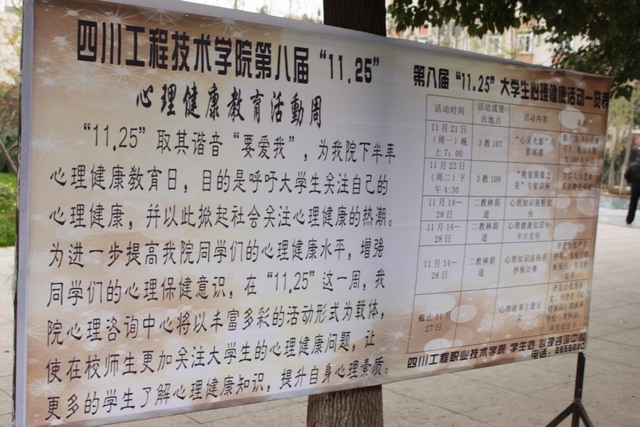 四川工程技术学院第八届“11,25”
心理健康教育活動周
“11,25”取其谐音“要爱我”,为我院下半年
心理健康教育日,目的是呼吁大学生关注自己的
心理健康,并以此掀起社会关注心理健康的热潮。
为进一步提高我院同学们的心理健康水平,增强
同学们的心理保健意识,在“11,25”这一周,我
院心理咨询中心将以丰富多彩的活动形式为载体,
使在校师生更加关注大学生的心理健康问题,让
更多的学生了解心理健康知识,提升自身心理素质。
第八届“11.25”大学生心理健康活动一览表
活动时间 活动或展出地点 活动内容
11月21日(周一)晚上7:00 3教107 “心灵光影”电影展播
11月22日(周二)下午4:30 3教109 专家讲座
11月14—28日 二教林荫道 心理知识展板宣传
11月14—28日 二教林荫道 心理健康知识卡片宣传
11月14—28日 二教林荫道 心理知识海报手抄报比赛
截止11月27日 心理故事主题征
四川工程职业技术学院 学生处 心理咨询中心
电话: